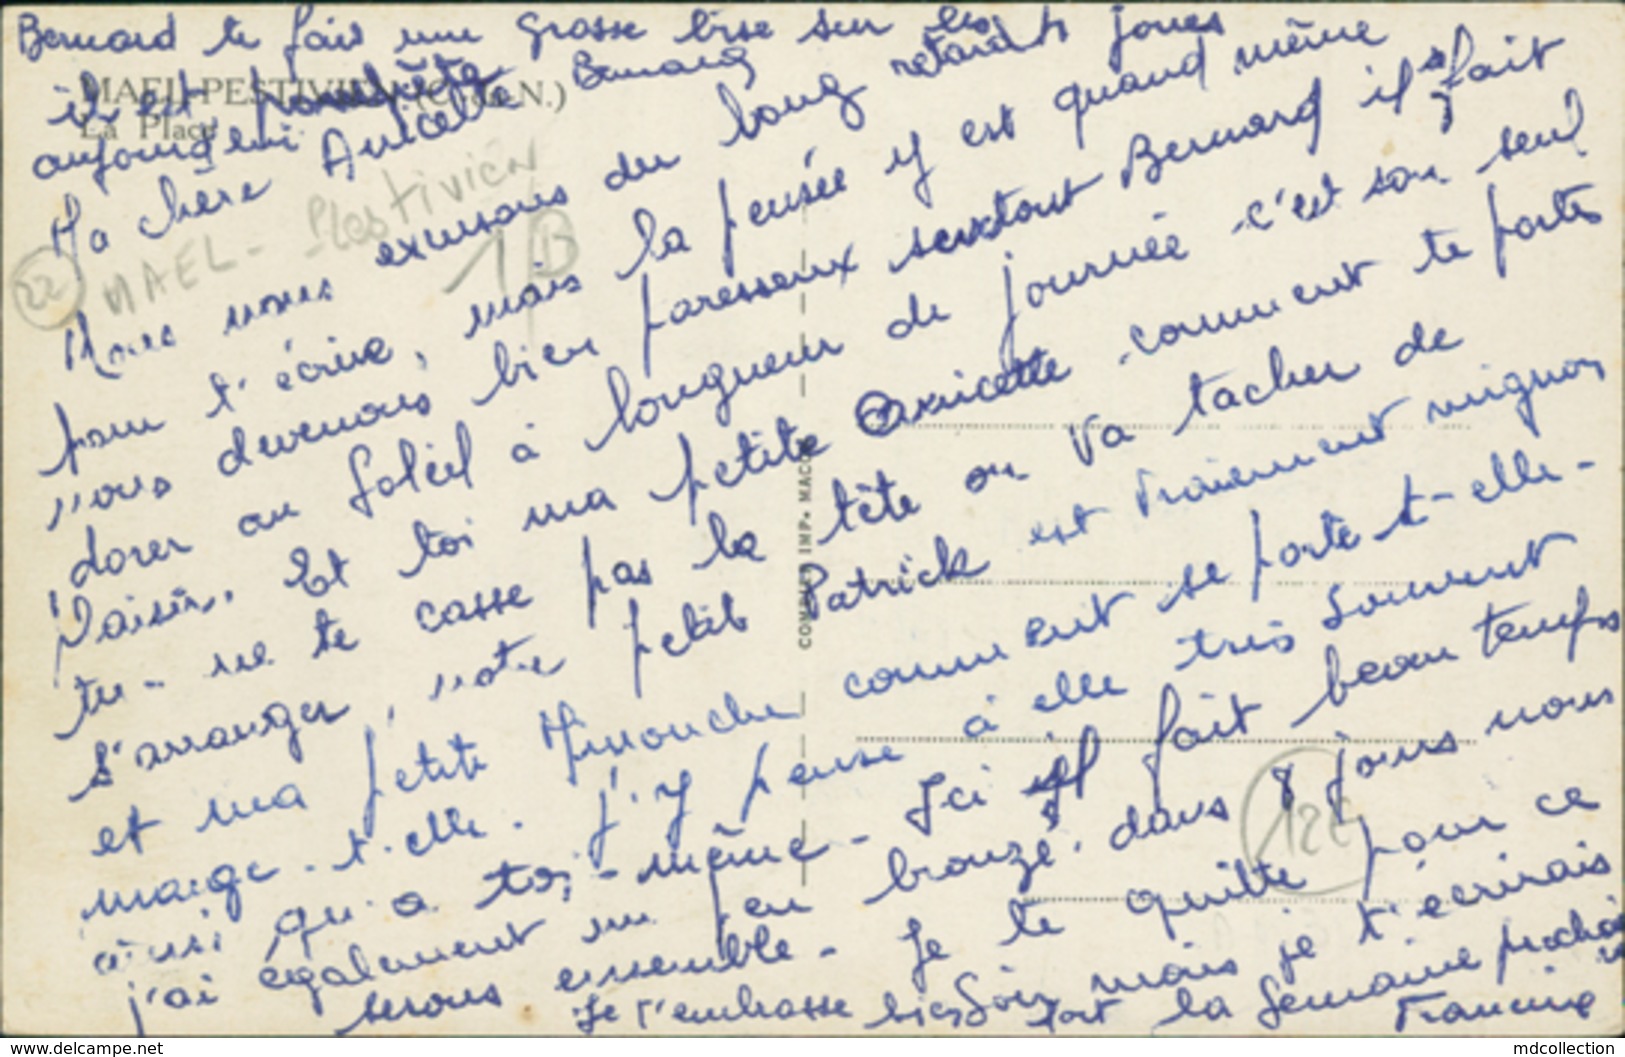 Bernard te fais une grosse bise sur les joues
il est honnête
aujourd'hui Bernard
MAEL-PESTIVIEN (C.-du-N.)
La Place
Ma chère Annette
MAEL - Pestivien
22
1 B
Nous nous excusons du long retard
pour t'écrire, mais la pensée y est quand même
nous devenons bien paresseux surtout Bernard il s'fait
dorer au soleil à longueur de journée c'est son seul
plaisir. Et toi ma petite Annicette comment te portes
tu - ne te casse pas la tête on va tacher de
s'arranger, notre petit Patrick est vraiement mignon
et ma petite Minouche comment se porte t-elle -
mange-t-elle. j'y pense à elle très souvent
ainsi qu'a toi-même - Ici il fait beau temps
j'ai également un peu bronzé. dans 8 jours nous
serons ensemble - Je te quitte pour ce
soir mais je t'écrirais
Je t'embrasse bien fort la semaine prochaine
Francine
COMBIER IMP. MACON
12€
www.delcampe.net
mdcollection